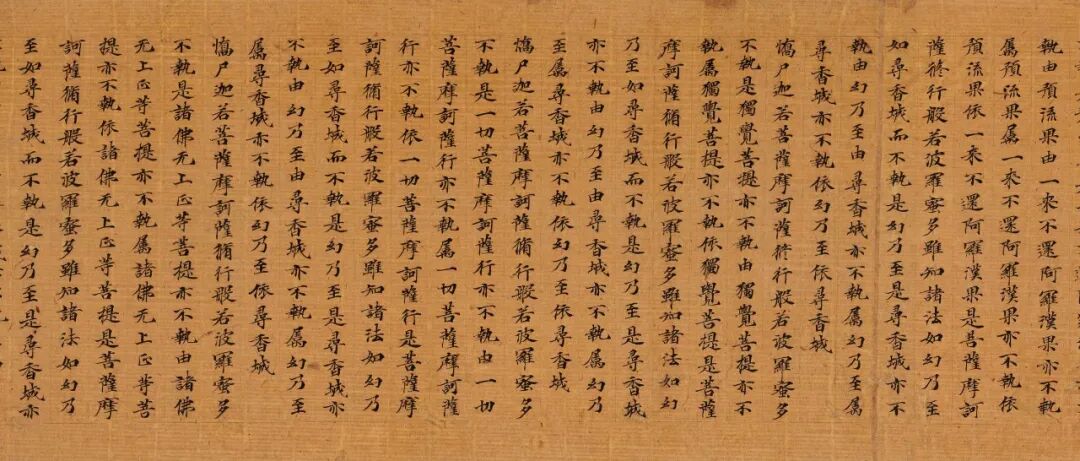 執由預流果由一來不還阿羅漢果亦不執
屬預流果屬一來不還阿羅漢果亦不執依
預流果依一來不還阿羅漢果是菩薩摩訶
薩修行般若波羅蜜多雖知諸法如幻乃至
如尋香城而不執是幻乃至是尋香城亦不
執由幻乃至由尋香城亦不執屬幻乃至屬
尋香城亦不執依幻乃至依尋香城
憍尸迦若菩薩摩訶薩修行般若波羅蜜多
不執是獨覺菩提亦不執由獨覺菩提亦不
執屬獨覺菩提亦不執依獨覺菩提是菩薩
摩訶薩脩行般若波羅蜜多雖知諸法如幻
乃至如尋香城而不執是幻乃至是尋香城
亦不執由幻乃至由尋香城亦不執屬幻乃
至屬尋香城亦不執依幻乃至依尋香城
憍尸迦若菩薩摩訶薩脩行般若波羅蜜多
不執是一切菩薩摩訶薩行亦不執由一切
菩薩摩訶薩行亦不執屬一切菩薩摩訶薩
行亦不執依一切菩薩摩訶薩行是菩薩摩
訶薩脩行般若波羅蜜多雖知諸法如幻乃
至如尋香城而不執是幻乃至是尋香城亦
不執由幻乃至由尋香城亦不執屬幻乃至
屬尋香城亦不執依幻乃至依尋香城
憍尸迦若菩薩摩訶薩脩行般若波羅蜜多
不執是諸佛无上正等菩提亦不執由諸佛
无上正等菩提亦不執屬諸佛无上正等菩
提亦不執依諸佛无上正等菩提是菩薩摩
訶薩脩行般若波羅蜜多雖知諸法如幻乃
至如尋香城而不執是幻乃至是尋香城亦